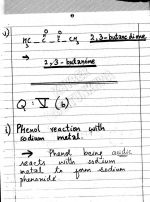 v)
O O
H₃C - C - C - CH₃ 2,3-butanedione
→
2,3-butanine
Q: V (b)
i) Phenol reaction with
sodium metal.
→ Phenol being acidic
reacts with sodium
metal to form sodium
phenoxide.